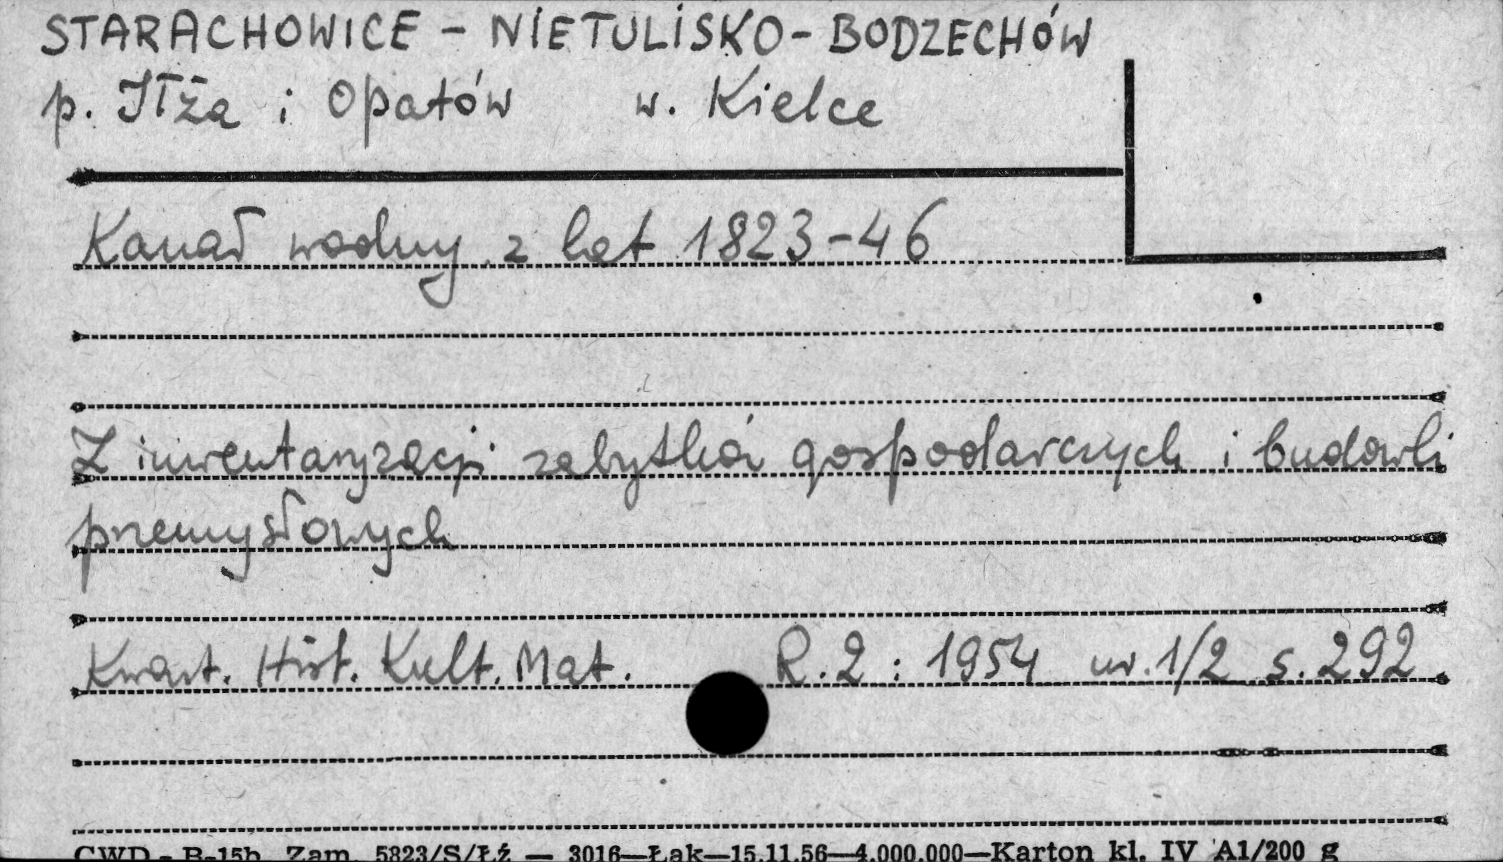 STARACHOWICE - NIETULISKO - BODZECHÓW
p. Iłża i Opatów w. Kielce
Kanał wodny z lat 1823-46
Z inwentaryzacji zabytków gospodarczych i budowli
przemysłowych
Kwart. Hist. Kult. Mat. R.2 : 1954 nr. 1/2 s. 292
CWD - B-15b Zam. 5823/S/Łź — 3016—Łąk—15.11.56—4.000.000—Karton kl. IV A1/200 g